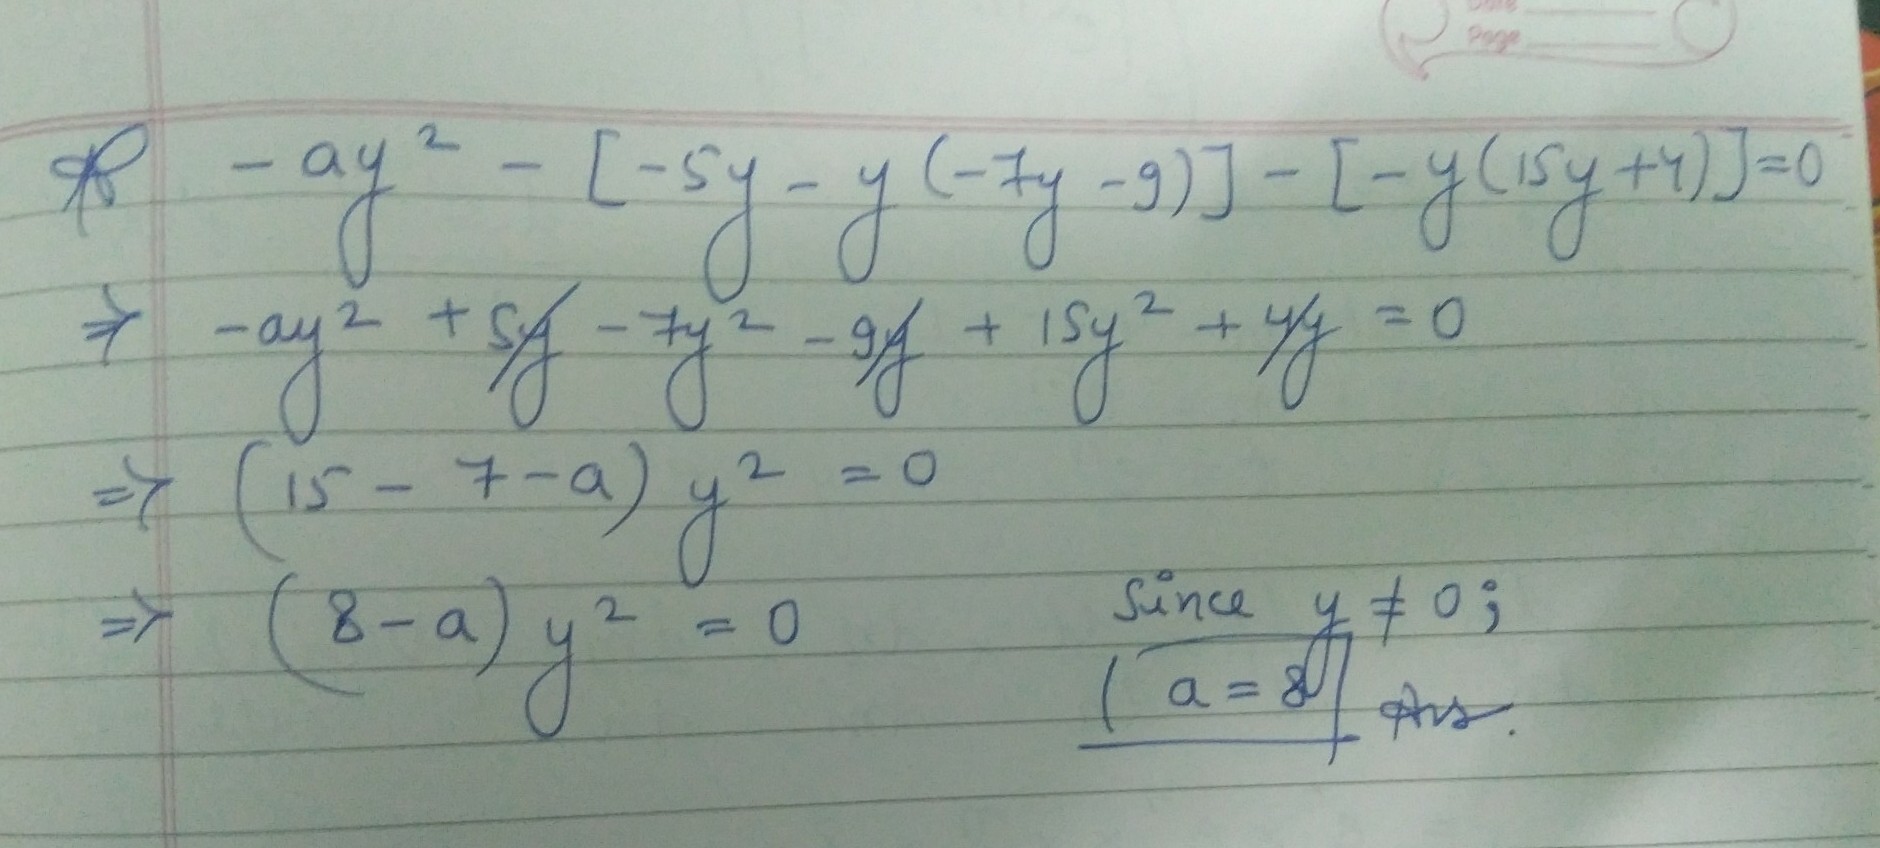 Page
- ay² - [-5y - y(-7y - 9)] - [-y(15y + 4)] = 0
⇒ - ay² + 5y - 7y² - 9y + 15y² + 4y = 0
⇒ (15 - 7 - a) y² = 0
⇒ (8 - a) y² = 0
Since y ≠ 0;
a = 8 Ans.